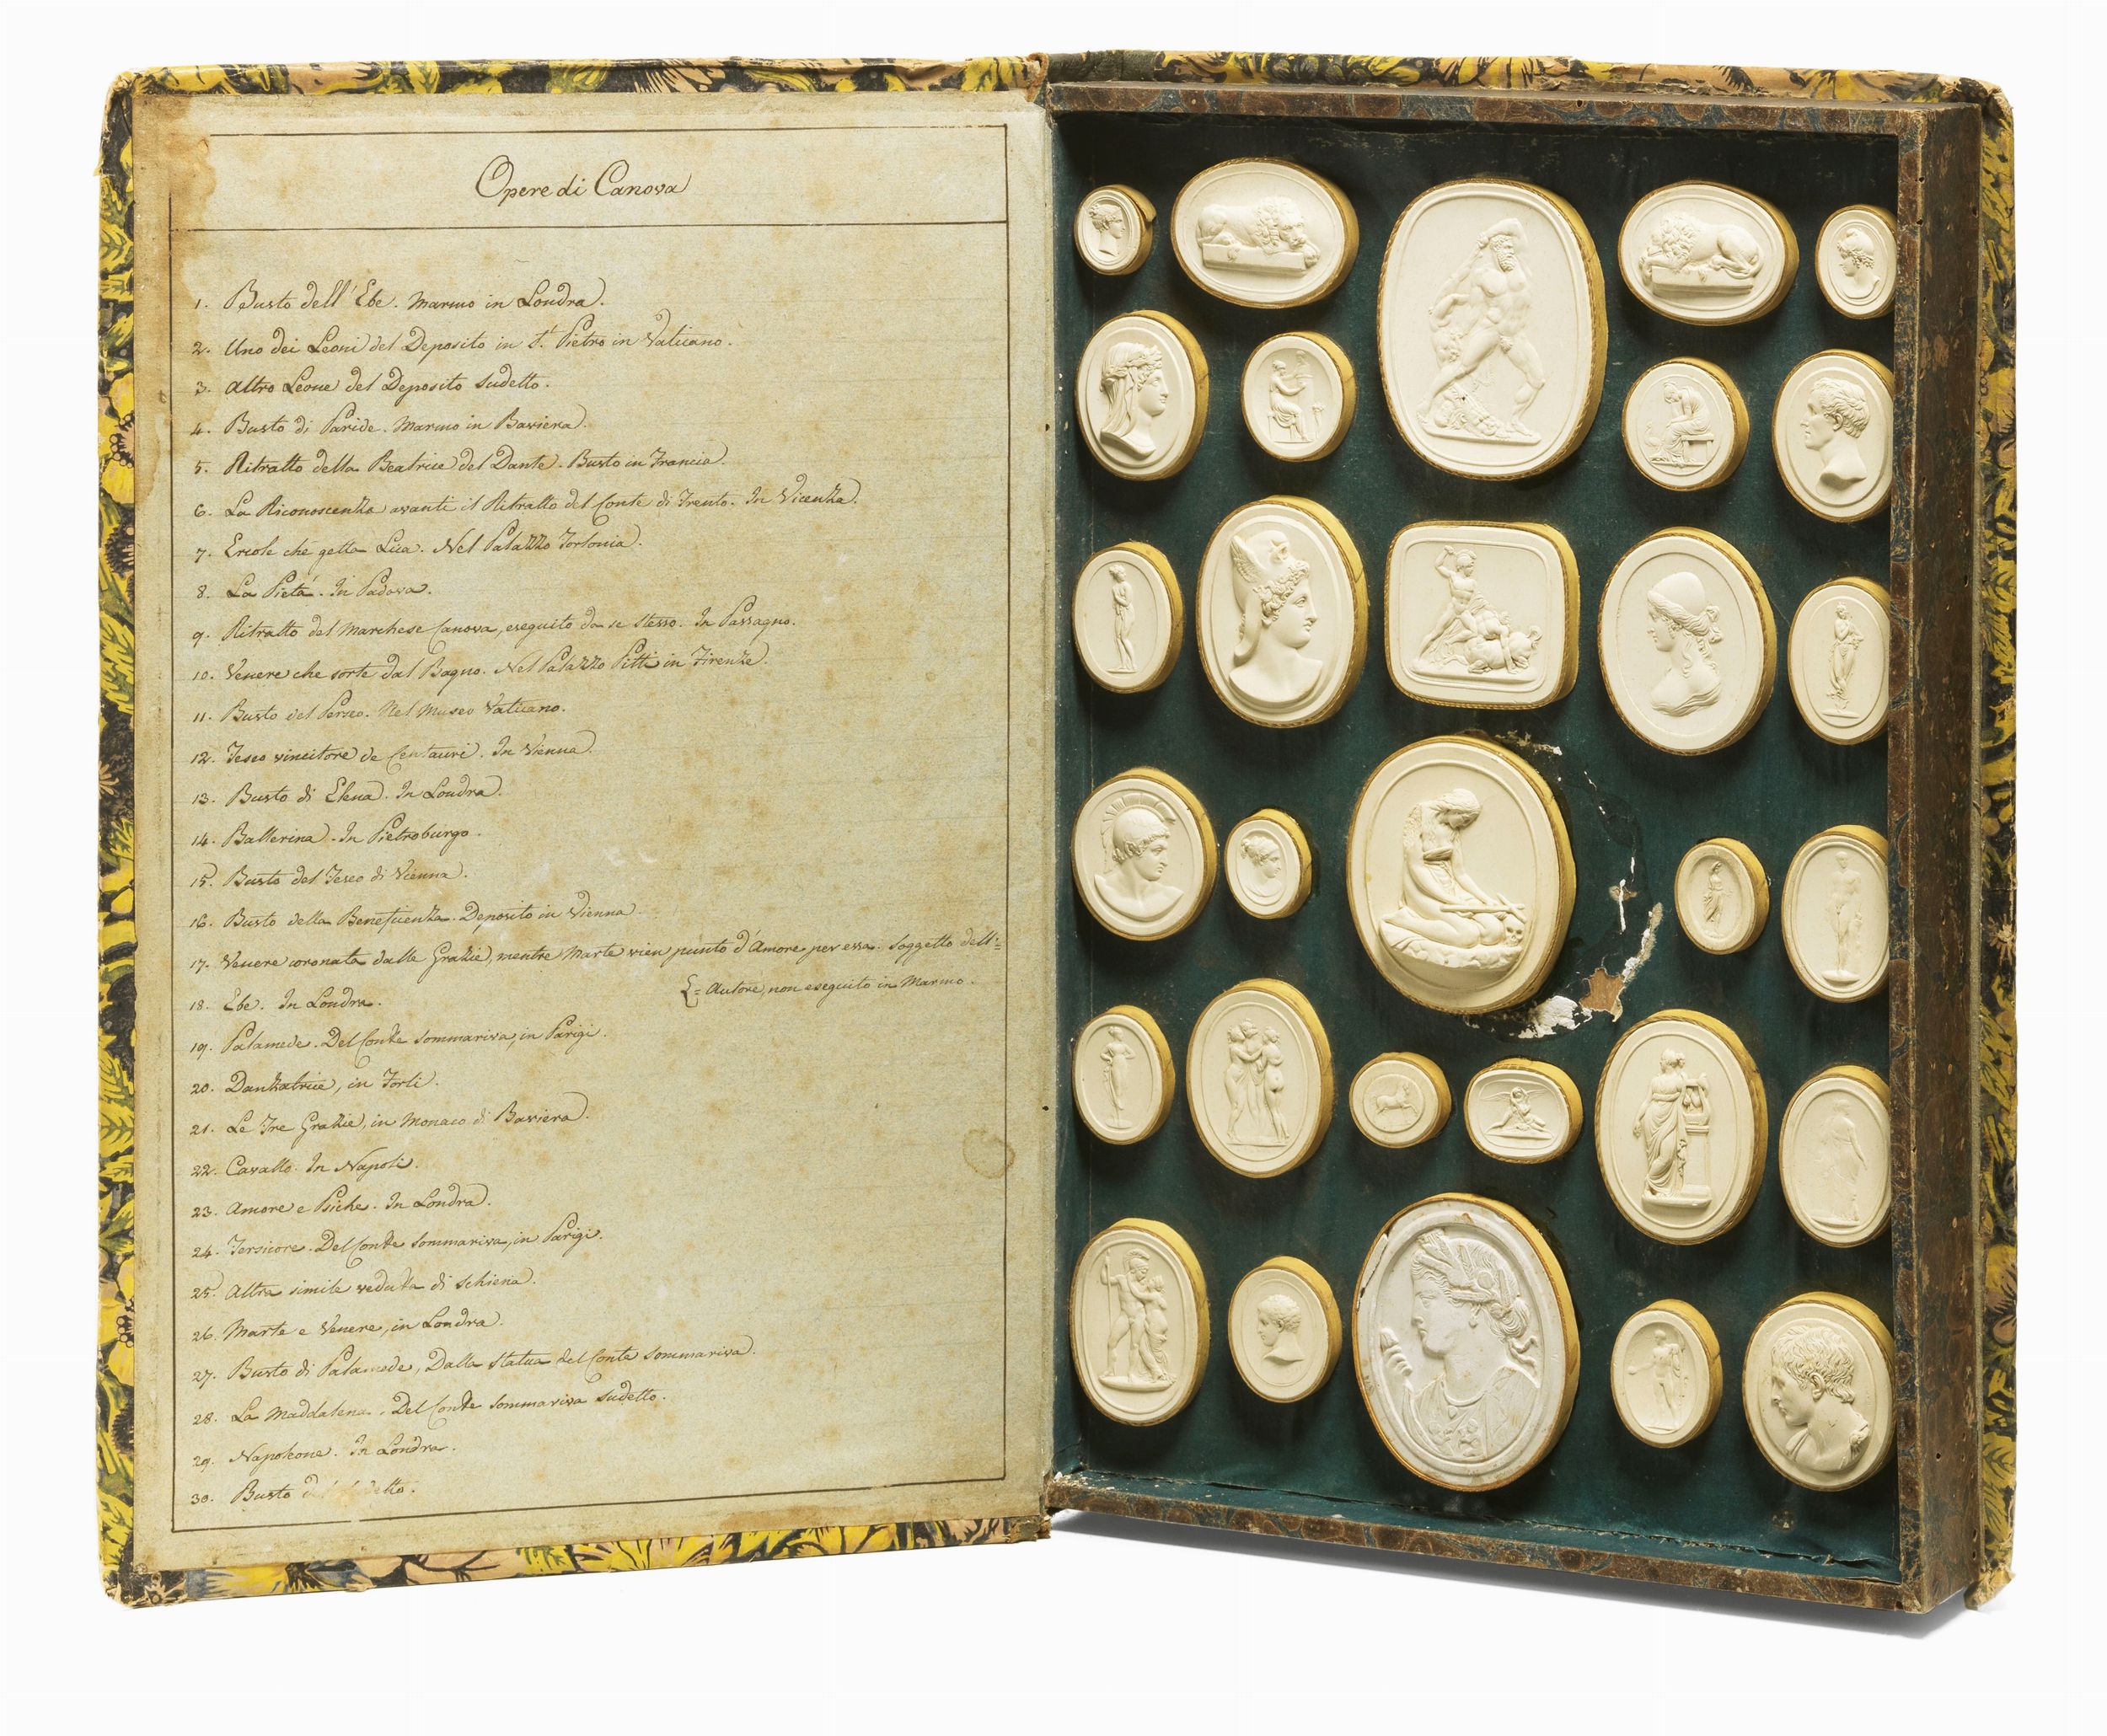 Opere di Canova
1. Busto dell'Ebe. Marmo in Londra.
2. Uno dei Leoni del Deposito in S. Pietro in Vaticano.
3. Altro Leone del Deposito sudetto.
4. Busto di Paride. Marmo in Baviera.
5. Ritratto della Beatrice del Dante. Busto in Francia.
6. La Riconoscenza avanti il Ritratto del Conte di Trento. In Vicenza.
7. Ercole che getta Lica. Nel Palazzo Torlonia.
8. La Pietà. In Padova.
9. Ritratto del Marchese Canova, eseguito da se stesso. In Possagno.
10. Venere che sorte dal Bagno. Nel Palazzo Pitti in Firenze.
11. Busto del Perseo. Nel Museo Vaticano.
12. Teseo vincitore de Centauri. In Vienna.
13. Busto di Elena. In Londra.
14. Ballerina. In Pietroburgo.
15. Busto del Teseo di Vienna.
16. Busto della Beneficenza. Deposito in Vienna.
17. Venere coronata dalle Grazie, mentre Marte vien punto d'Amore per essa. Soggetto dell'=
= Autore, non eseguito in Marmo.
18. Ebe. In Londra.
19. Palamede. Del Conte Sommariva, in Parigi.
20. Danzatrice, in Forlì.
21. Le Tre Grazie, in Monaco di Baviera.
22. Cavallo. In Napoli.
23. Amore e Psiche. In Londra.
24. Tersicore. Del Conte Sommariva, in Parigi.
25. Altra simile veduta di schiena.
26. Marte e Venere, in Londra.
27. Busto di Palamede, Dalla Statua del Conte Sommariva.
28. La Maddalena. Del Conte Sommariva sudetto.
29. Napoleone. In Londra.
30. Busto